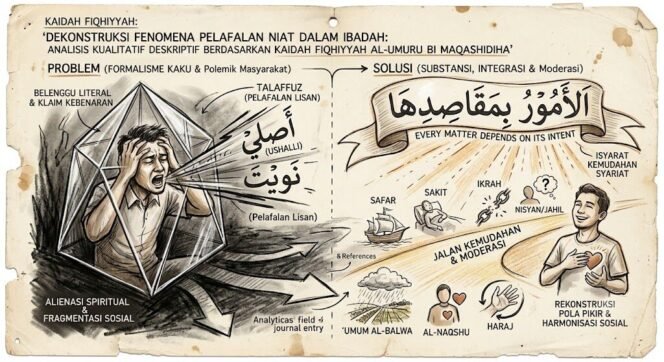 KAIDAH FIQHIYYAH:
'DEKONSTRUKSI FENOMENA PELAFALAN NIAT DALAM IBADAH:
ANALISIS KUALITATIF DESKRIPTIF BERDASARKAN KAIDAH FIQHIYYAH AL-UMURU BI MAQASHIDIHA'
PROBLEM (FORMALISME KAKU & Polemik Masyarakat)
BELENGGU LITERAL
& KLAIM KEBENARAN
TALAFFUZ
(PELAFALAN LISAN)
أَصلِي
(USHALLI)
نَوَيتَ
(Pelafalan Lisan)
ALIENASI SPIRITUAL
& FRAGMENTASI SOSIAL
Analyticas field &
journal entry
SOLUSI (SUBSTANSI, INTEGRASI & Moderasi)
الَأمُوْرُ بِمَقَاصِدِهَا
EVERY MATTER DEPENDS ON ITS INTENT
ISYARAT
KEMUDAHAN
SYARIAT
SAFAR
SAKIT
IKRAH
?
NISYAN/JAHIL
JALAN KEMUDAHAN
& MODERASI
& References
'UMUM AL-BALWA
AL-NAQSHU
HARAJ
REKONSTRUKSI
POLA PIKIR &
HARMONISASI SOSIAL